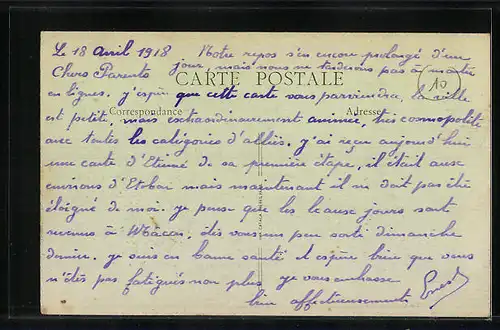 Le 18 avril 1918 Notre repos s'en encore prolongé d'une
Chers Parents jour, mais nous ne tarderons pas à monter
CARTE POSTALE
10
en lignes. j'espère que cette carte vous parviendra, la ville
Correspondance Adresse
est petite, mais extraordinairement animée, très cosmopolite
avec toutes les catégories d'alliés. J'ai reçu aujourd'hui
une carte d'Etienne de sa première étape, il était aux
environs d' mais maintenant il ne doit pas être
éloigné de moi. je pense que les beaux jours sont
revenus à Mâcon, êtes vous un peu sorti dimanche
dernier. je suis en bonne santé il espère bien que vous
n'êtes pas fatigués non plus. je vous embrasse
bien affectueusement Ernest